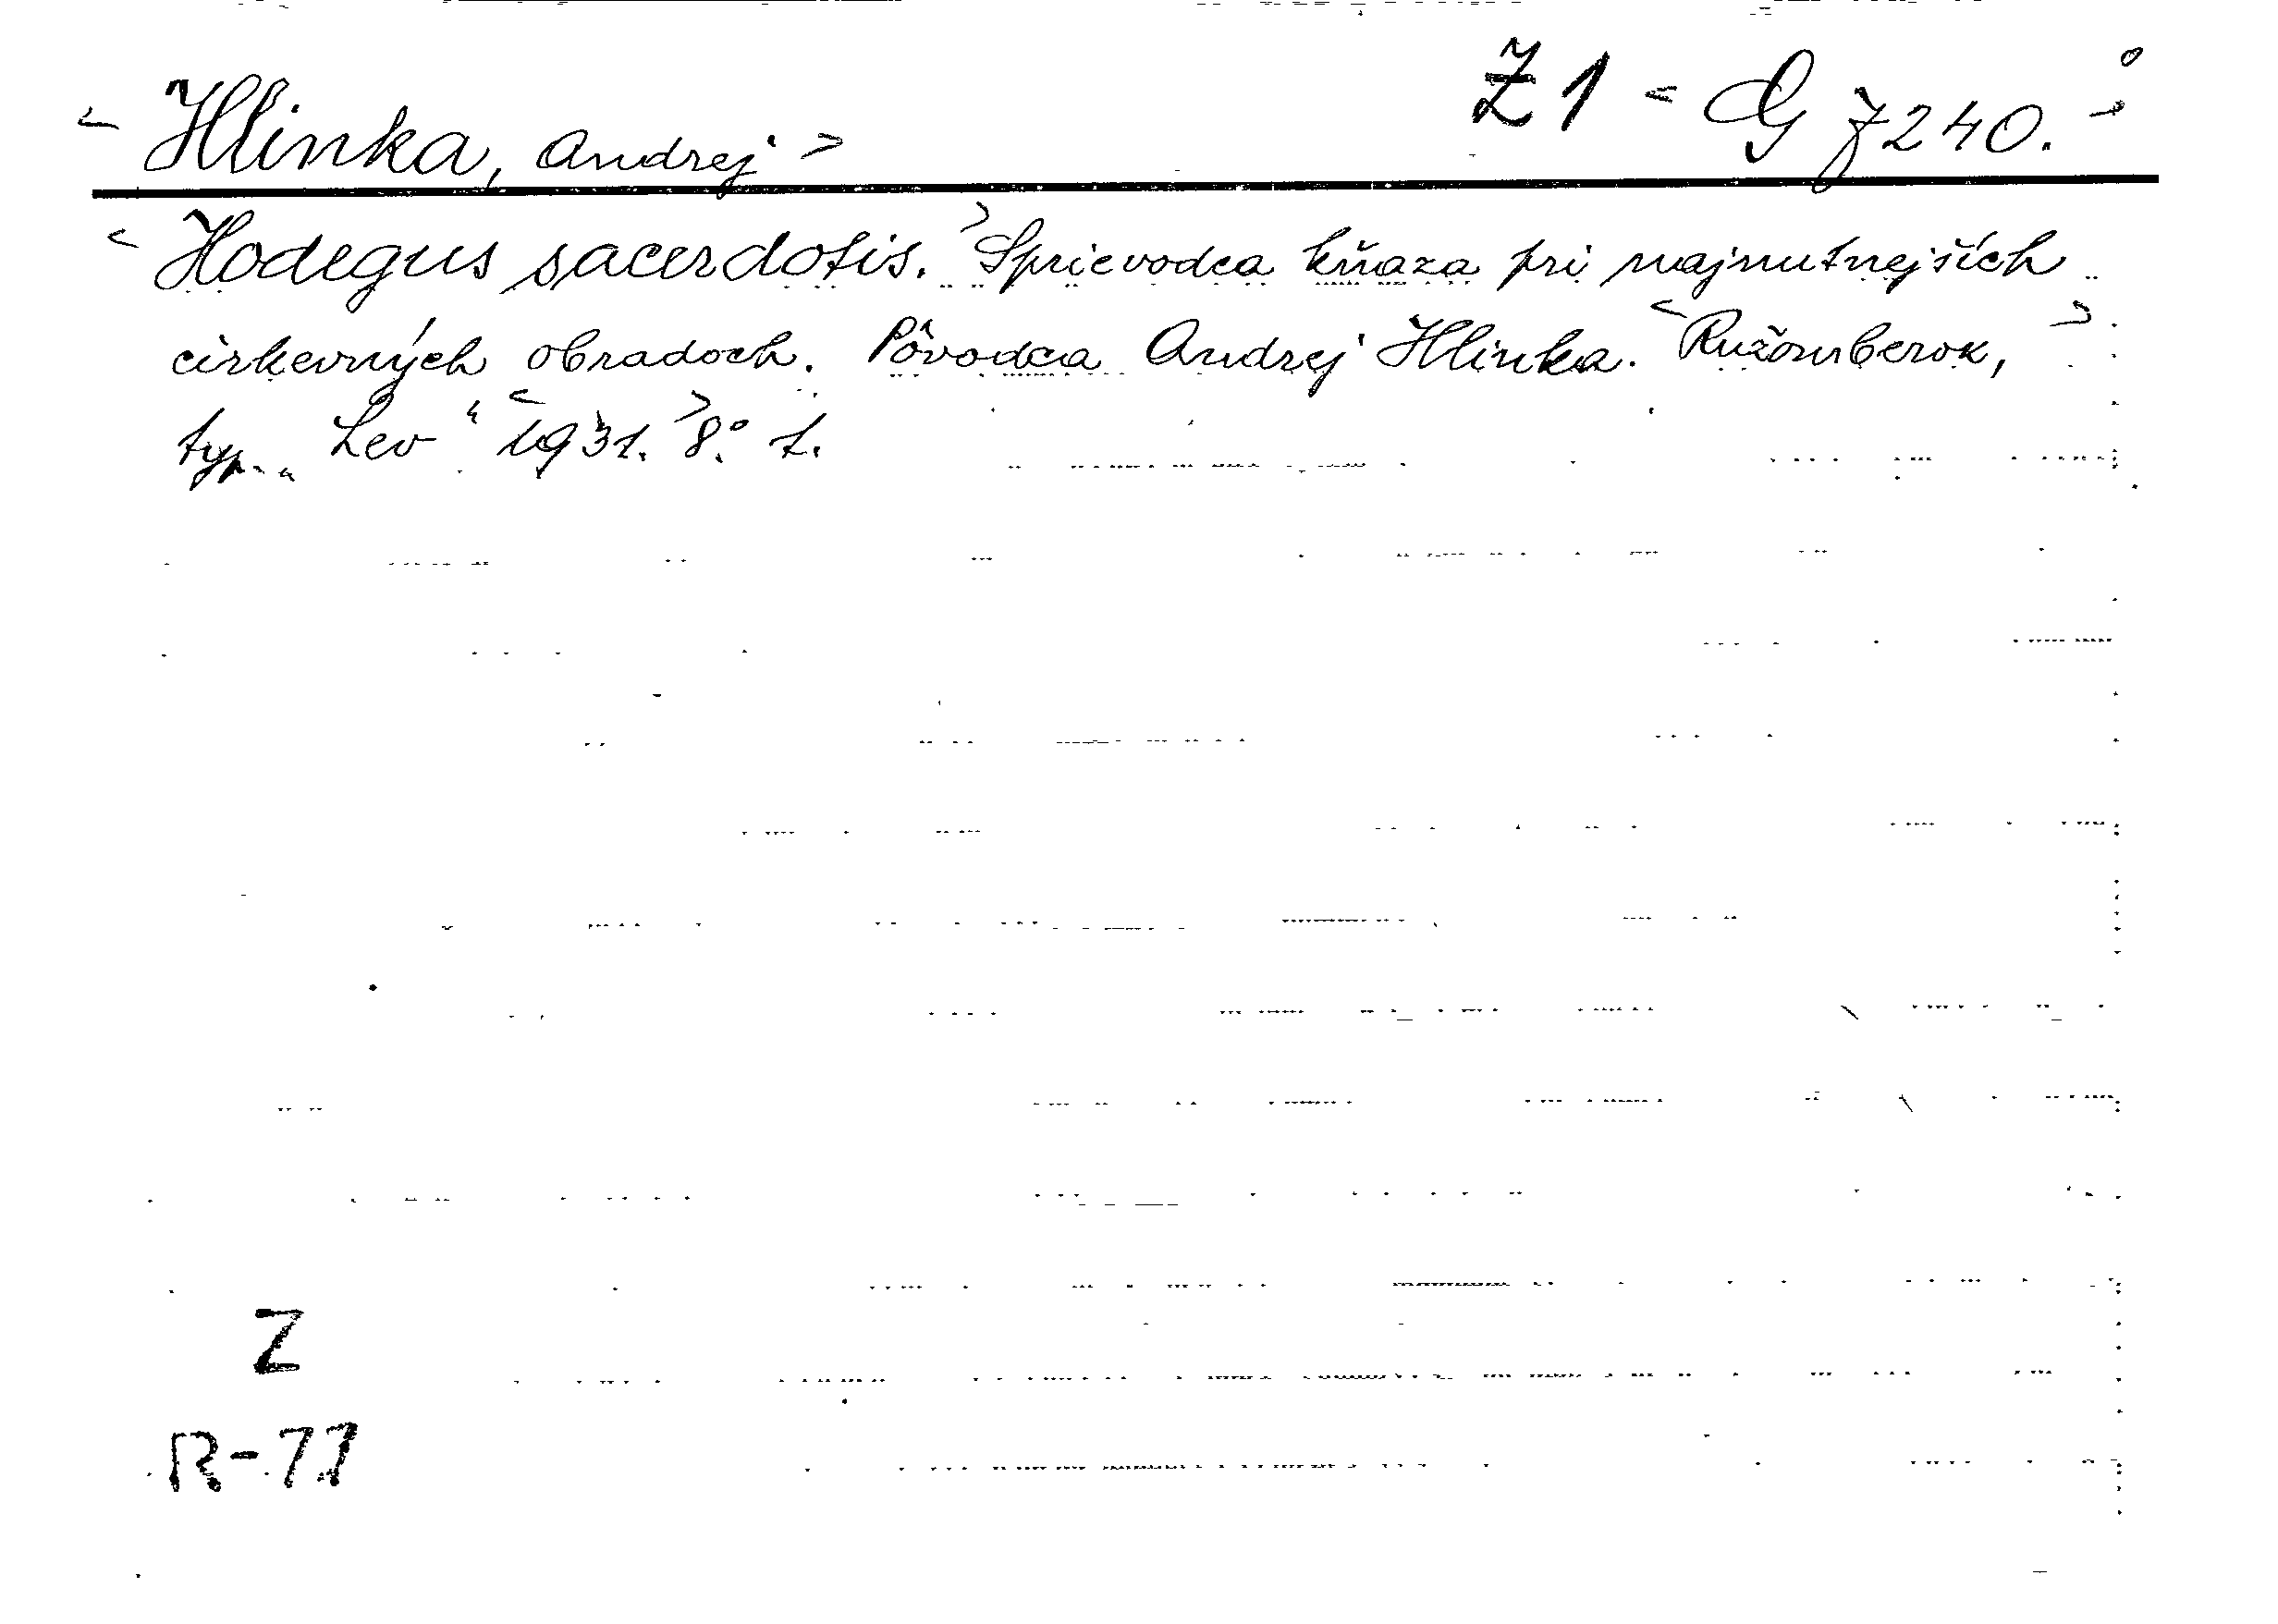 <Hlinka, Andrej> Z1 <G 7240.>
<Hodegus sacerdotis.> Sprievodca kňaza pri najnutnejších
cirkevných obradoch. Pôvodca Andrej Hlinka. <Ružomberok,>
typ. „Lev“ <1931.> 8.° 1.
Z
R-77